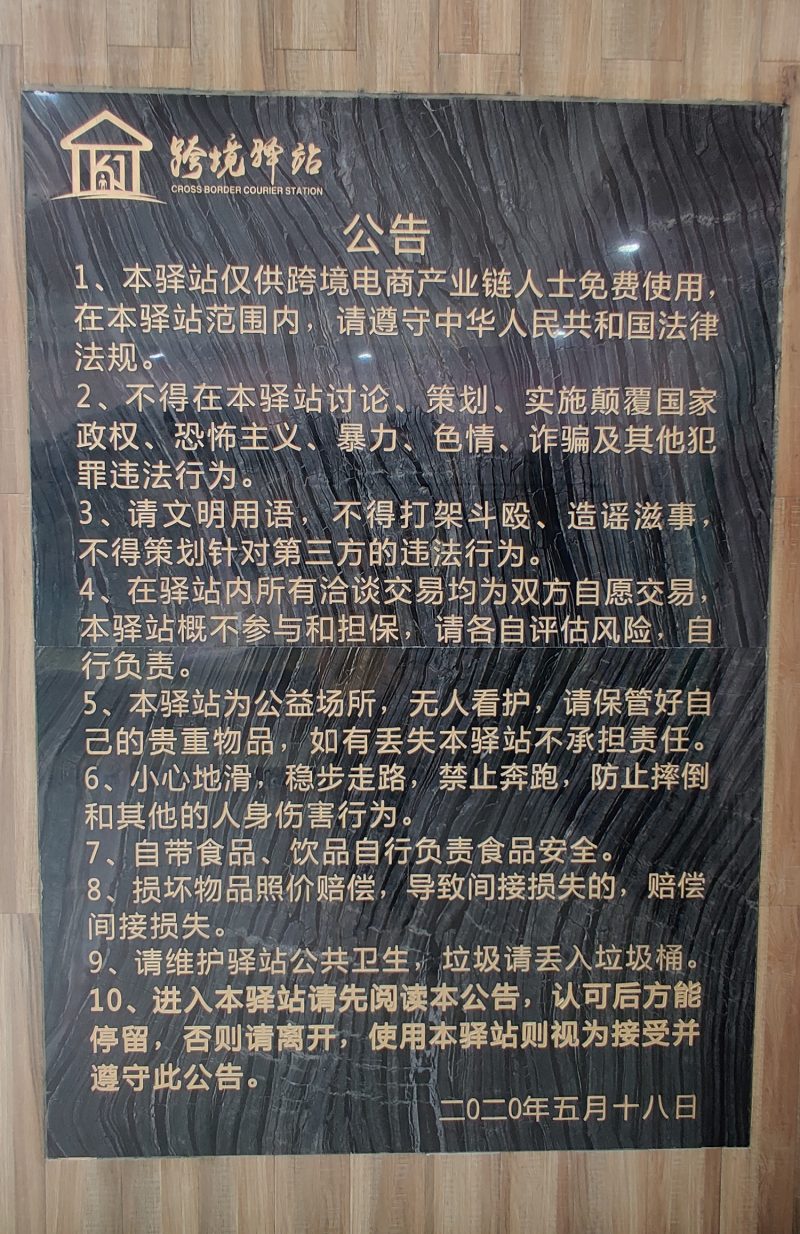 跨境驿站
CROSS BORDER COURIER STATION
公告
1、本驿站仅供跨境电商产业链人士免费使用，
在本驿站范围内，请遵守中华人民共和国法律
法规。
2、不得在本驿站讨论、策划、实施颠覆国家
政权、恐怖主义、暴力、色情、诈骗及其他犯
罪违法行为。
3、请文明用语，不得打架斗殴、造谣滋事，
不得策划针对第三方的违法行为。
4、在驿站内所有洽谈交易均为双方自愿交易，
本驿站概不参与和担保，请各自评估风险，自
行负责。
5、本驿站为公益场所，无人看护，请保管好自
己的贵重物品，如有丢失本驿站不承担责任。
6、小心地滑，稳步走路，禁止奔跑，防止摔倒
和其他的人身伤害行为。
7、自带食品、饮品自行负责食品安全。
8、损坏物品照价赔偿，导致间接损失的，赔偿
间接损失。
9、请维护驿站公共卫生，垃圾请丢入垃圾桶。
10、进入本驿站请先阅读本公告，认可后方能
停留，否则请离开，使用本驿站则视为接受并
遵守此公告。
二0二0年五月十八日